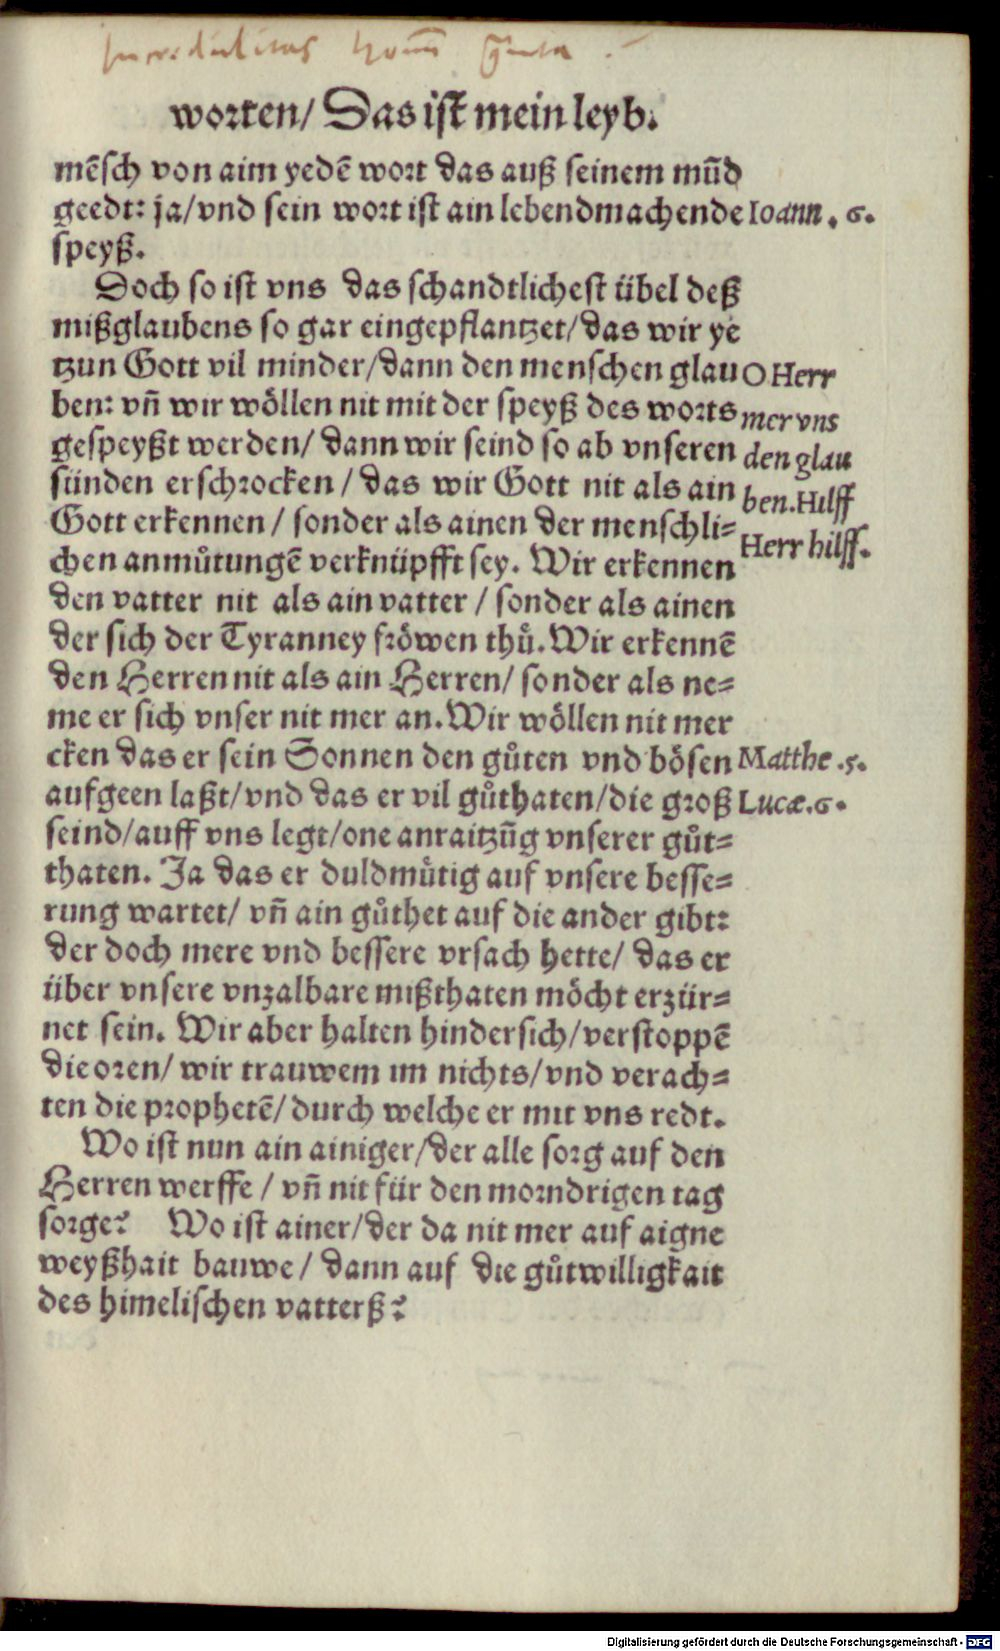 Incredulitas
worten/ Das ist mein leyb.
mēsch von aim yedē wort das auß seinem mūd
geedt: ja/vnd sein wort ist ain lebendmachende Ioann. 6.
speyß.
Doch so ist vns das schandtlichest übel deß
mißglaubens so gar eingepflantzet/das wir ye
tzun Gott vil minder/dann den menschen glau O Herr
ben: vñ wir wöllen nit mit der speyß des worts mer vns
gespeyßt werden/ dann wir seind so ab vnseren den glau
sünden erschrocken / das wir Gott nit als ain ben. Hilff
Gott erkennen / sonder als ainen der menschli=
Herr hilff.
chen anmůtungē verknüpfft sey. Wir erkennen
den vatter nit als ain vatter / sonder als ainen
der sich der Tyranney fröwen thů. Wir erkennē
den Herren nit als ain Herren/ sonder als ne=
me er sich vnser nit mer an. Wir wöllen nit mer
cken das er sein Sonnen den gůten vnd bösen Matthe .5.
aufgeen laßt/vnd das er vil gůthaten/die groß Lucæ. 6.
seind/auff vns legt/one anraitzūg vnserer gůt=
thaten. Ja das er duldmůtig auf vnsere besse=
rung wartet/ vñ ain gůthet auf die ander gibt:
der doch mere vnd bessere vrsach hette/ das er
über vnsere vnzalbare mißthaten möcht erzür=
net sein. Wir aber halten hindersich/verstoppē
die oren/ wir trauwem im nichts/vnd verach=
ten die prophetē/durch welche er mit vns redt.
Wo ist nun ain ainiger/der alle sorg auf den
Herren werffe / vñ nit für den morndrigen tag
sorge? Wo ist ainer/der da nit mer auf aigne
weyßhait bauwe / dann auf die gůtwilligkait
des himelischen vatterß?
Digitalisierung gefördert durch die Deutsche Forschungsgemeinschaft - DFG